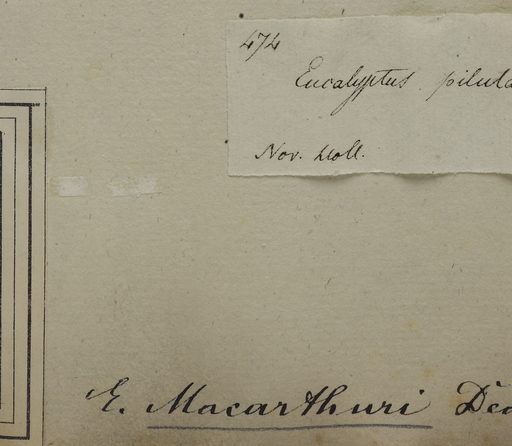 474
Eucalyptus pilula
Nov. Holl.
E. Macarthuri Dea